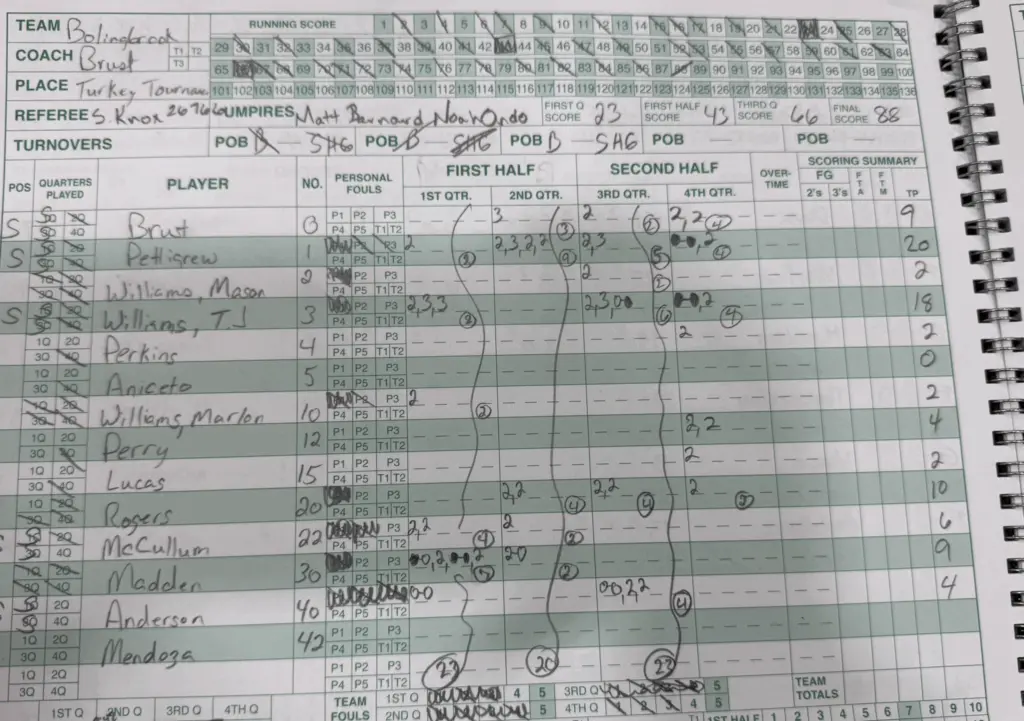 TEAM Bolingbrook RUNNING SCORE 1 2 3 4 5 6 7 8 9 10 11 12 13 14 15 16 17 18 19 20 21 22 23 24 25 26 27 28
COACH Brust T1 T2 T3 29 30 31 32 33 34 35 36 37 38 39 40 41 42 43 44 45 46 47 48 49 50 51 52 53 54 55 56 57 58 59 60 61 62 63 64
65 66 67 68 69 70 71 72 73 74 75 76 77 78 79 80 81 82 83 84 85 86 87 88 89 90 91 92 93 94 95 96 97 98 99 100
PLACE Turkey Tournau 101 102 103 104 105 106 107 108 109 110 111 112 113 114 115 116 117 118 119 120 121 122 123 124 125 126 127 128 129 130 131 132 133 134 135 136
REFEREE S. Knox UMPIRES Matt Barnard, Noah Ondo FIRST Q SCORE 23 FIRST HALF SCORE 43 THIRD Q SCORE 66 FINAL SCORE 88
TURNOVERS POB B — SHG POB B — SHG POB B — SHG POB — POB —
POS QUARTERS PLAYED PLAYER NO. PERSONAL FOULS FIRST HALF SECOND HALF OVER-TIME SCORING SUMMARY
1ST QTR. 2ND QTR. 3RD QTR. 4TH QTR. FG 2's 3's FTA FTM TP
S Brut 0 P1 P2 P3 P4 P5 T1 T2 3 3 2 2 2,2 4 9
S Pettigrew 1 P2 P3 P4 P5 T1 T2 2 2 2,3,2,2 9 2,3 5 2 4 20
1Q 2Q 3Q 4Q Williams, Mason 2 P2 P3 P4 P5 T1 T2 2 2 2
S Williams, TJ 3 P2 P3 P4 P5 T1 T2 2,3,3 8 2,3,0 6 2 4 18
1Q 2Q 3Q 4Q Perkins 4 P1 P2 P3 P4 P5 T1 T2 2 2
1Q 2Q 3Q 4Q Aniceto 5 P1 P2 P3 P4 P5 T1 T2 0
1Q 2Q 3Q 4Q Williams, Marlon 10 P2 P3 P4 P5 T1 T2 2 2 2
1Q 2Q 3Q 4Q Perry 12 P1 P2 P3 P4 P5 T1 T2 2,2 4
1Q 2Q 3Q 4Q Lucas 15 P1 P2 P3 P4 P5 T1 T2 2 2
1Q 2Q 3Q 4Q Rogers 20 P2 P3 P4 P5 T1 T2 2,2 4 2,2 4 2 2 10
McCullum 22 P3 P4 P5 T1 T2 2,2 4 2 2 6
1Q 2Q 3Q 4Q Madden 30 P2 P3 P4 P5 T1 T2 20 2 9
Anderson 40 P4 P5 T1 T2 00 00,2,2 4 4
1Q 2Q 3Q 4Q Mendoza 42 P1 P2 P3 P4 P5 T1 T2
1Q 2Q 3Q 4Q P1 P2 P3 P4 P5 T1 T2 23 20 23
TEAM FOULS 1ST Q 4 5 3RD Q 1 2 3 4 5 TEAM TOTALS
2ND Q 5 4TH Q 1 2 3 4 5
1ST Q 2ND Q 3RD Q 4TH Q T1 1ST HALF 1 2 3 4 5 6 7 8 9 10